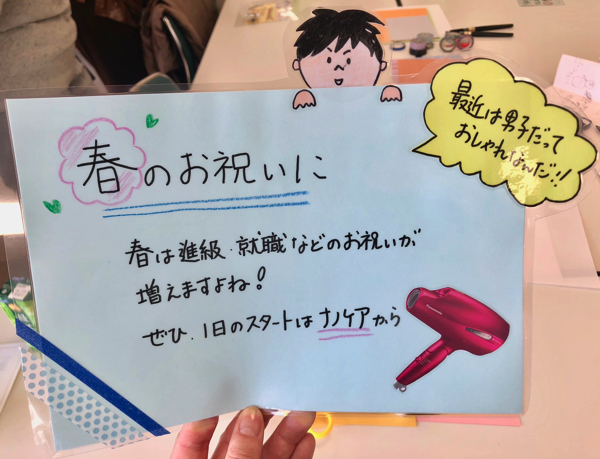 最近は男子だって
おしゃれなんだ!!
春のお祝いに
春は進級、就職などのお祝いが
増えますよね!
ぜひ、1日のスタートはナノケアから
Panasonic